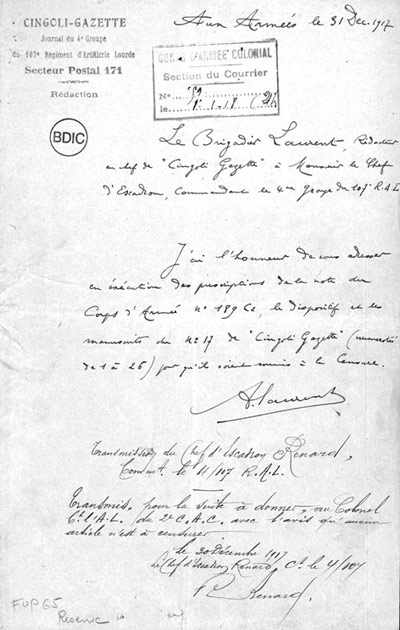 CINGOLI-GAZETTE
Journal du 4e Groupe
du 107e Régiment d'Artillerie Lourde
Secteur Postal 171
Rédaction
Aux Armées le 31 Dec. 1917
CORPS D'ARMÉE COLONIAL
Section du Courrier
No
le 1.1.18
BDIC
Le Brigadier Laurent, Rédacteur
en chef de "Cingoli Gazette" à Monsieur le Chef
d'Escadron, Commandant le 4me Groupe du 107e R.A.L
J'ai l'honneur de vous adresser
en exécution des prescriptions de la note du
Corps d'Armée No 189 C2, le dispositif et les
manuscrits du No 17 de "Cingoli Gazette" (numérotés
de 1 à 26) pour qu'ils soient soumis à la Censure.
A. Laurent
Transmission du Chef d'Escadron Renard,
Commt. le 4/107 R.A.L.
Transmis, pour la suite à donner, au Colonel
Ct. l'A.L. du 2e C.A.C. avec l'avis qu'aucun
article n'est à censurer
le 30 Décembre 1917
Le Chef d'Escadron Renard, Ct. le 4/107
Renard
F UP 65
Reserve